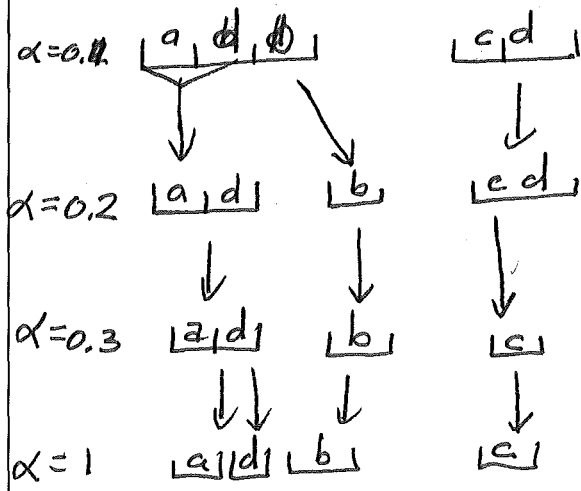 α=0.1 a d b c d
α=0.2 a d b c d
α=0.3 a d b c
α=1 a d b c